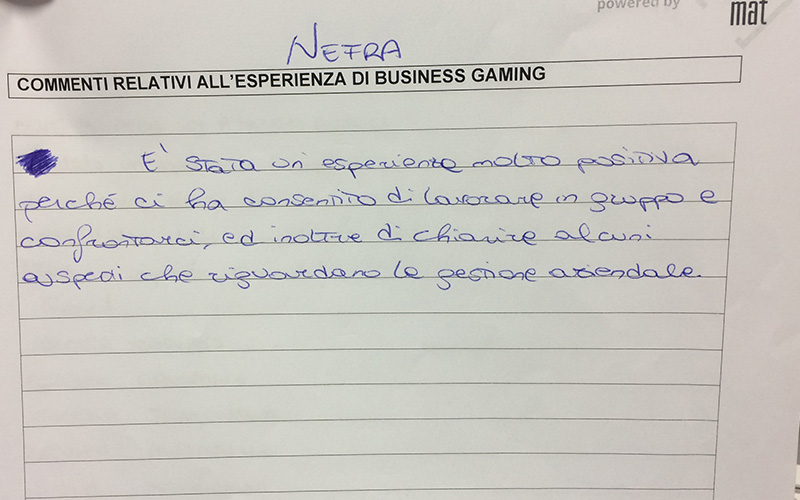 powered by
mat
NEFRA
COMMENTI RELATIVI ALL'ESPERIENZA DI BUSINESS GAMING
E' stata un'esperienza molto positiva
perché ci ha consentito di lavorare in gruppo e
confrontarci, ed inoltre di chiarire alcuni
aspetti che riguardano la gestione aziendale.